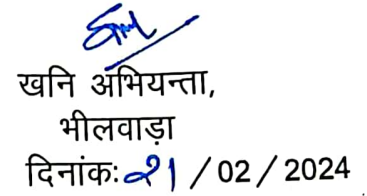 खनि अभियन्ता,
भीलवाड़ा
दिनांकः 21 / 02 / 2024